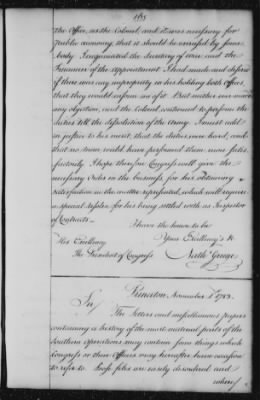 163
the Office, as the Colonel, and it was necessary for
public oeconomy, that it should be executed by some
body. I requested the Secretary of war and the
Financier of the appointment I had made and desired
if there was any impropriety in his holding both Offices
that they would inform me of it. But neither one made
any objection, and the Colonel continued to perform the
duties till the dissolution of the Army. I must add
in justice to his merit, that the duties were hard, and
that no man could have performed them more satis-
factorily. I hope therefore Congress will give the
necessary Orders in the business, for his Pecuniary
satisfaction in the matter represented, which will require
a special resolve for his being settled with as Inspector
of Contracts.
I have the honor to be
His Excellency Your Excellency's &
The President of Congress Nath: Greene
Princeton, November 1st 1783.
Sir,
The Letters and miscellaneous papers
containing a history of the most material parts of the
Southern operations may contain some things which
Congress or their Officers may hereafter have occasion
to refer to. Loose files are easily disordered and
when